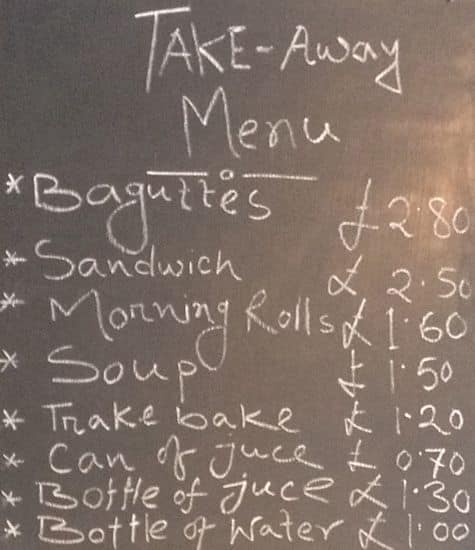 TAKE-Away
Menu
* Baguttes £2.80
* Sandwich £ 2.50
* Morning Rolls £1.60
* Soup £ 1.50
* Trake bake £ 1.20
* Can of juce £ 0.70
* Bottle of juce £1.30
* Bottle of Water £1.00